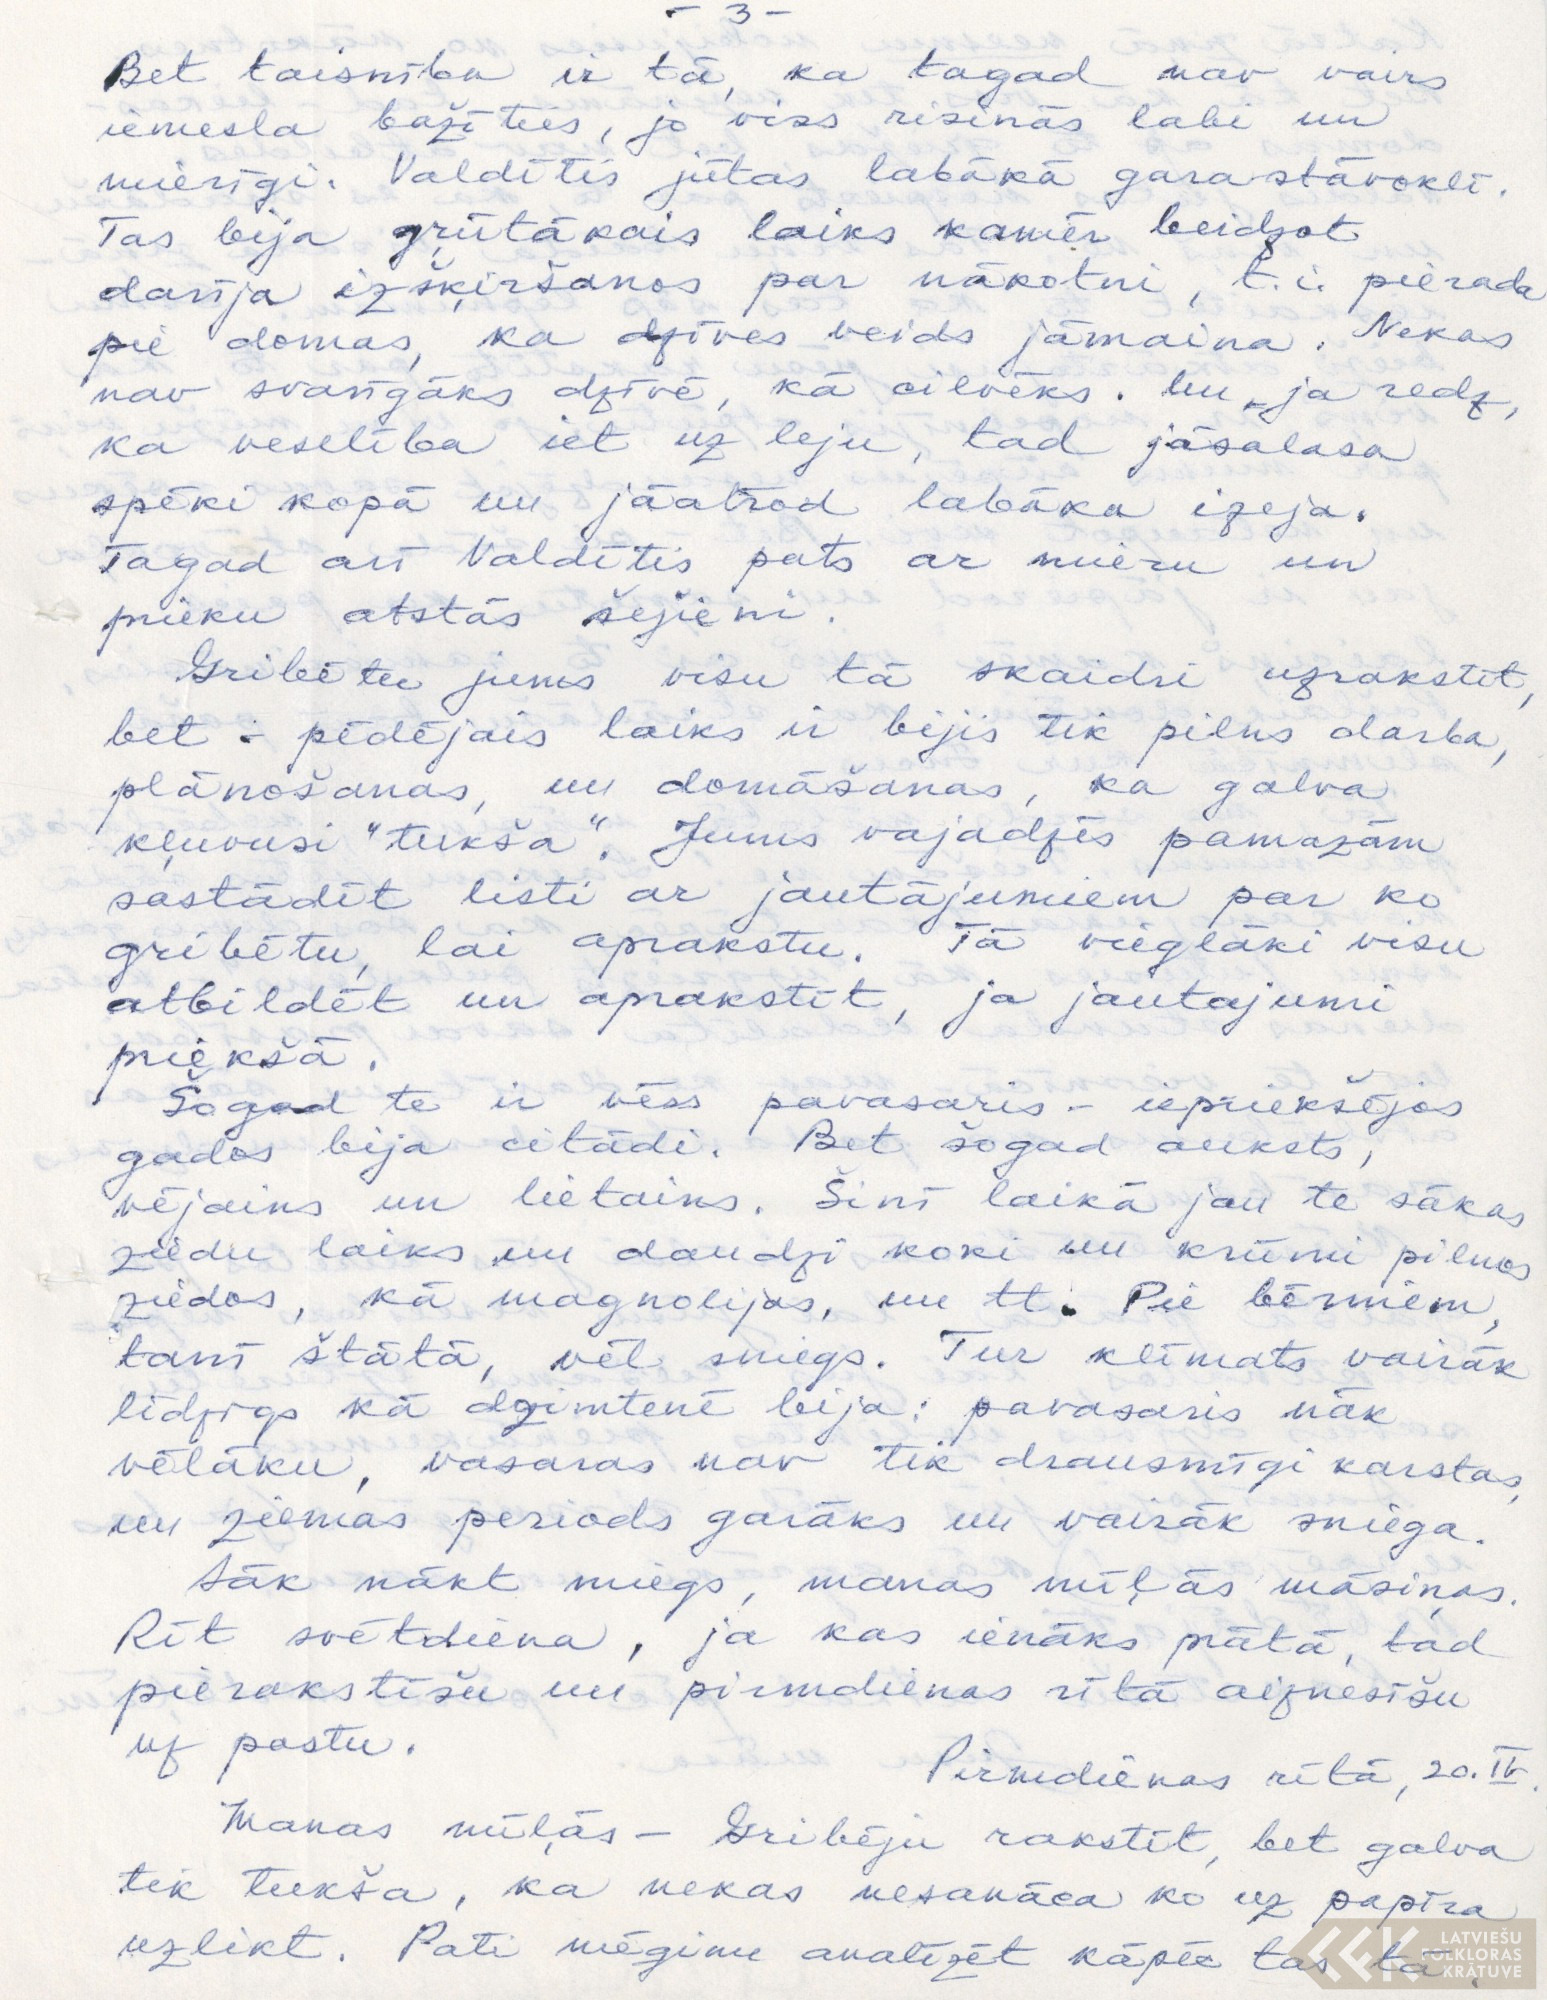 - 3 -
Bet taisnība ir tā, ka tagad nav vairs
iemesla bažīties, jo viss risinās labi un
mierīgi. Valdītis jūtas labākā garastāvoklī.
Tas bija grūtākais laiks kamēr beidzot
darīja izšķiršanos par nākotni, t.i. pierada
pie domas, ka dzīves veids jāmaina. Nekas
nav svarīgāks dzīvē, kā cilvēks. Un, ja redz,
ka veselība iet uz leju, tad jāsalasa
spēki kopā un jāatrod labāka izeja.
Tagad arī Valdītis pats ar mieru un
prieku atstās šejieni.
Gribētu jums visu tā skaidri uzrakstīt,
bet - pēdējais laiks ir bijis tik pilns darba,
plānošanas, un domāšanas, ka galva
kļuvusi "tukša". Jums vajadzēs pamazām
sastādīt listi ar jautājumiem par ko
gribētu, lai aprakstu. Tā vieglāki visu
atbildēt un aprakstīt, ja jautajumi
priekšā.
Šogad te ir vēss pavasaris - iepriekšējos
gados bija citādi. Bet šogad auksts,
vējains un lietains. Šinī laikā jau te sākas
ziedu laiks un daudzi koki un krūmi pilnos
ziedos, kā magnolijas, un tt. Pie bērniem,
tanī štātā, vēl sniegs. Tur klimats vairāk
līdzīgs kā dzimtenē bija: pavasaris nāk
vēlāku, vasaras nav tik drausmīgi karstas,
un ziemas periods garāks un vairāk sniega.
Sāk nākt miegs, manas mīļās māsiņas.
Rīt svētdiena, ja kas ienāks prātā, tad
pierakstīšu un pirmdienas rītā aiznesīšu
uz pastu.
Pirmdienas rītā, 20. IV.
Manas mīļās - Gribēju rakstīt, bet galva
tik tukša, ka nekas nesanāca ko uz papīra
uzlikt. Pati mēģinu analizēt kāpēc tas tā.
LATVIEŠU
FOLKLORAS
KRĀTUVE